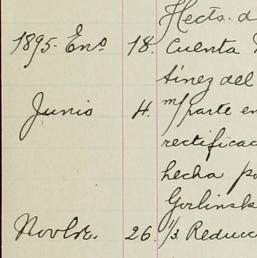 Hects. d
1895. Eno 18. Cuenta
tínez del
Junio 4. m/parte en
rectificac
hecha po
Gorlinsk
Novbre. 26. 1/3 Reducc